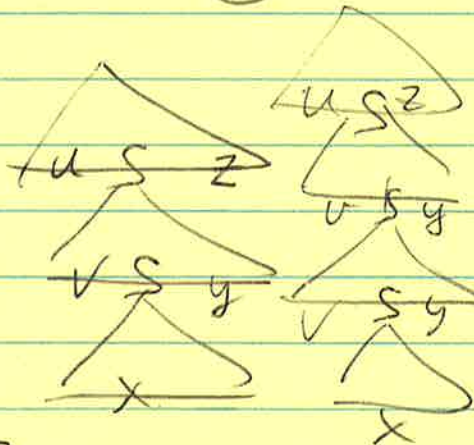 u S z
v S y
x
u S z
v S y
v S y
x